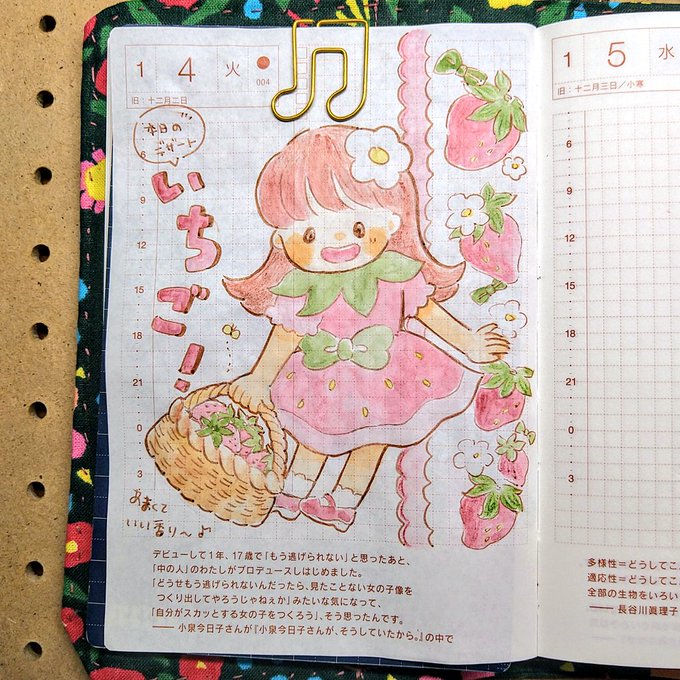 1 4 火
004
旧：十二月二日
本日の
デザート
いちご！
6
9
12
15
18
21
0
3
あまくて
いい香り〜♪
デビューして1年、17歳で「もう逃げられない」と思ったあと、
「中の人」のわたしがプロデュースしはじめました。
「どうせもう逃げられないんだったら、見たことない女の子像を
つくり出してやろうじゃねぇか」みたいな気になって、
「自分がスカッとする女の子をつくろう」、そう思ったんです。
── 小泉今日子さんが『小泉今日子さんが、そうしていたから。』の中で
1 5 水
旧：十二月三日／小寒
6
9
12
15
18
21
0
3
多様性＝どうしてこ
適応性＝どうしてこ
全部の生物をいろい
── 長谷川眞理子